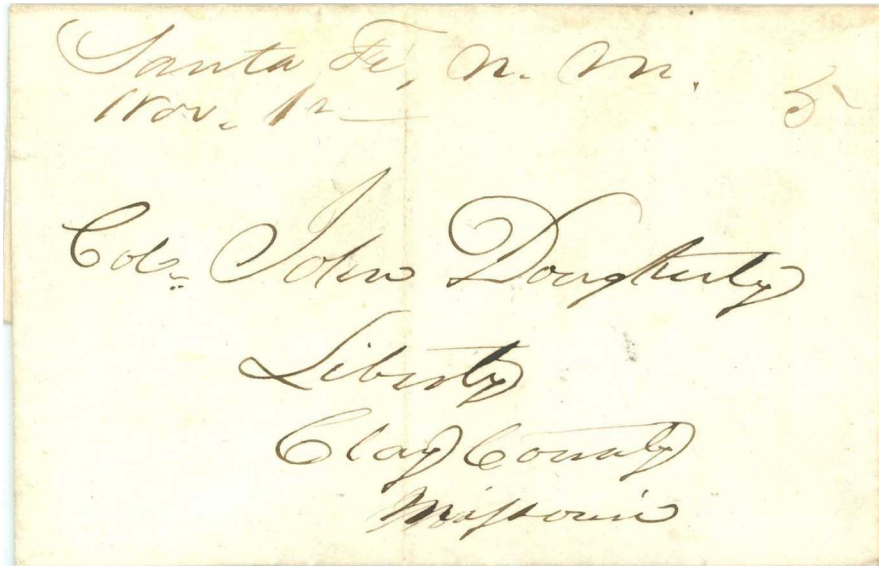 Santa Fe, N. M. 5
Nov. 12
Col. John Dougherty
Liberty
Clay County
Missouri